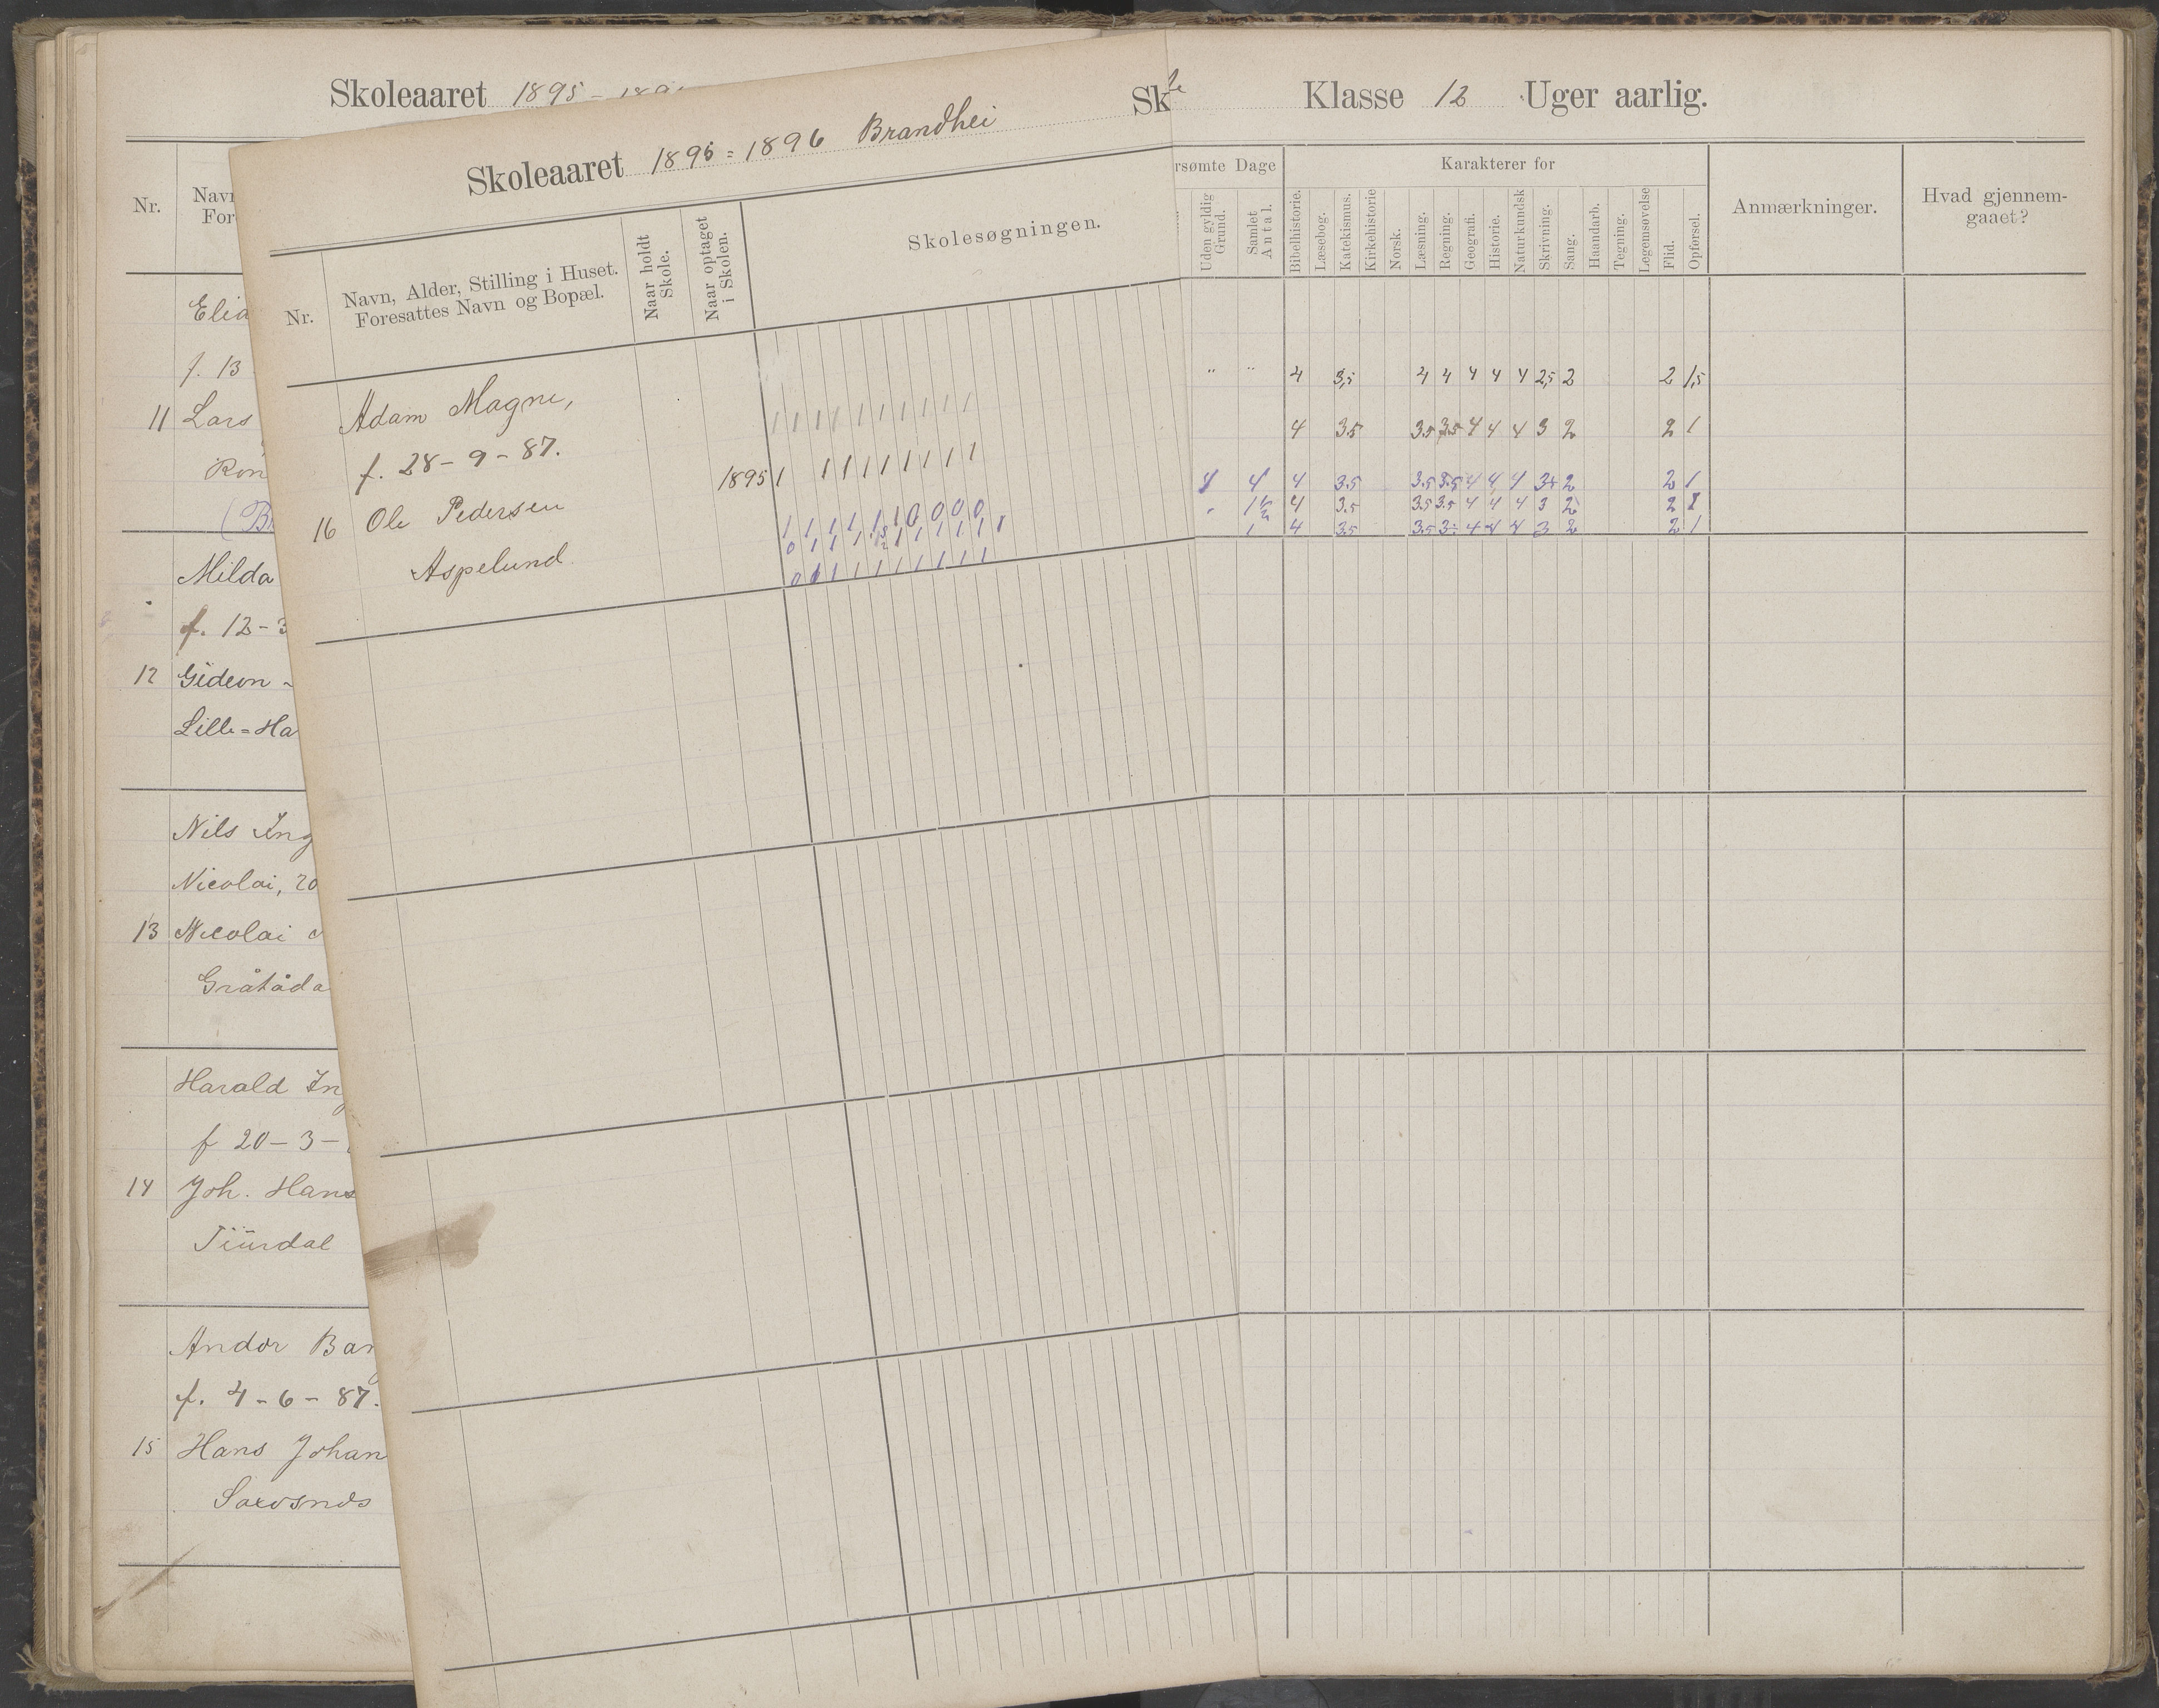 Skoleaaret 1895 -
Nr.
Elia
f. 13
11 Lars
Ron
Milda
f. 12-3
12 Gideon
Lille-Ha
Nils Ing
Nicolai, 20
13 Nicolai
Gråtåda
Harald Ing
f 20-3-
14 Joh. Hans
f. 4-6-87.
15 Hans Johan
Skoleaaret 1895=1896 Brandhei
Nr.
Navn, Alder, Stilling i Huset.
Foresattes Navn og Bopæl.
Naar holdt
Skole.
Naar optaget
i Skolen.
Skolesøgningen.
Adam Magne,
f. 28-9-87.
16 Ole Pedersen
Aspelund
1895
1 1 1 1 1 1 1 1 1 1
1 1 1 1 1 1 1 1 1
Klasse 12 Uger aarlig.
Karakterer for
Anmærkninger.
Hvad gjennem-
gaaet?
Uden gyldig
Grund.
Samlet
Antal.
Bibelhistorie.
Læsebog.
Katekismus.
Kirkehistorie
Norsk.
Læsning.
Regning.
Geografi.
Historie.
Naturkundsk
Skrivning.
Sang.
Haandarb.
Tegning.
Legemsøvelse
Flid.
Opførsel.
" " 4 3,5 4 4 4 4 4 2,5 2 2 1,5
4 3.5 3.5 3.5 4 4 4 3 2 2 1
4 4 4 3.5 3.5 3.5 4 4 4 3+ 2 2 1
4 3.5 3.5 3.5 4 4 4 3 2 2
1 4 3.5 3.5 4 4 4 3 2 2 1